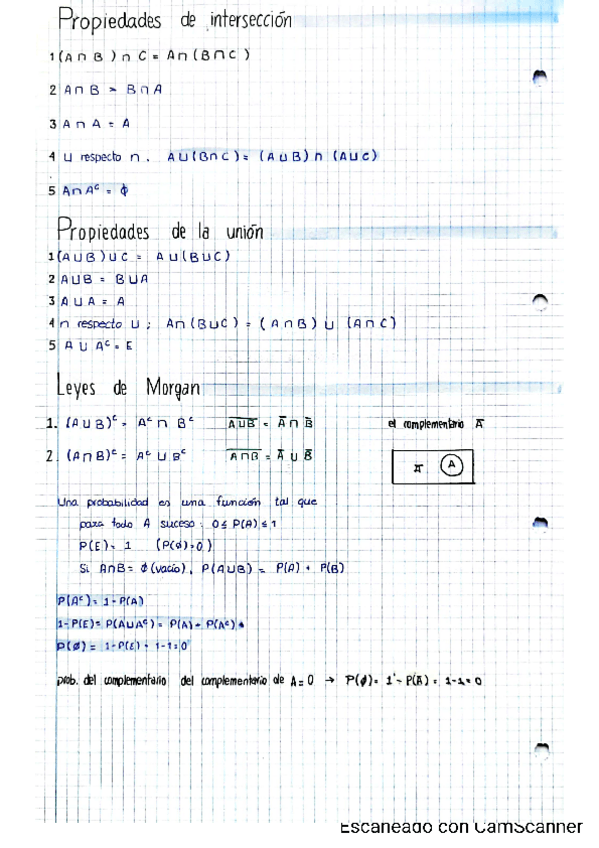 Propiedades de intersección
1 (A ∩ B) ∩ C = A ∩ (B ∩ C)
2 A ∩ B = B ∩ A
3 A ∩ A = A
4 U respecto ∩. A ∪ (B ∩ C) = (A ∪ B) ∩ (A ∪ C)
5 A ∩ Aᶜ = ϕ
Propiedades de la unión
1 (A ∪ B) ∪ C = A ∪ (B ∪ C)
2 A ∪ B = B ∪ A
3 A ∪ A = A
4 ∩ respecto U ; A ∩ (B ∪ C) = (A ∩ B) ∪ (A ∩ C)
5 A ∪ Aᶜ = E
Leyes de Morgan
1. (A ∪ B)ᶜ = Aᶜ ∩ Bᶜ A̅∪̅B̅ = A̅ ∩ B̅ el complementario A̅
2. (A ∩ B)ᶜ = Aᶜ ∪ Bᶜ A̅∩̅B̅ = A̅ ∪ B̅
A̅ A
Una probabilidad es una función tal que
para todo A suceso : 0 ≤ P(A) ≤ 1
P(E) = 1 (P(ϕ)=0)
Si A∩B = ϕ (vacío), P(A∪B) = P(A) + P(B)
P(Aᶜ) = 1 - P(A)
1 - P(E) = P(A∪Aᶜ) = P(A) + P(Aᶜ)
P(ϕ) = 1 - P(E) = 1-1=0
prob. del complementario del complementario de A = 0 → P(ϕ) = 1 - P(A̅) = 1-1=0
Escaneado con CamScanner